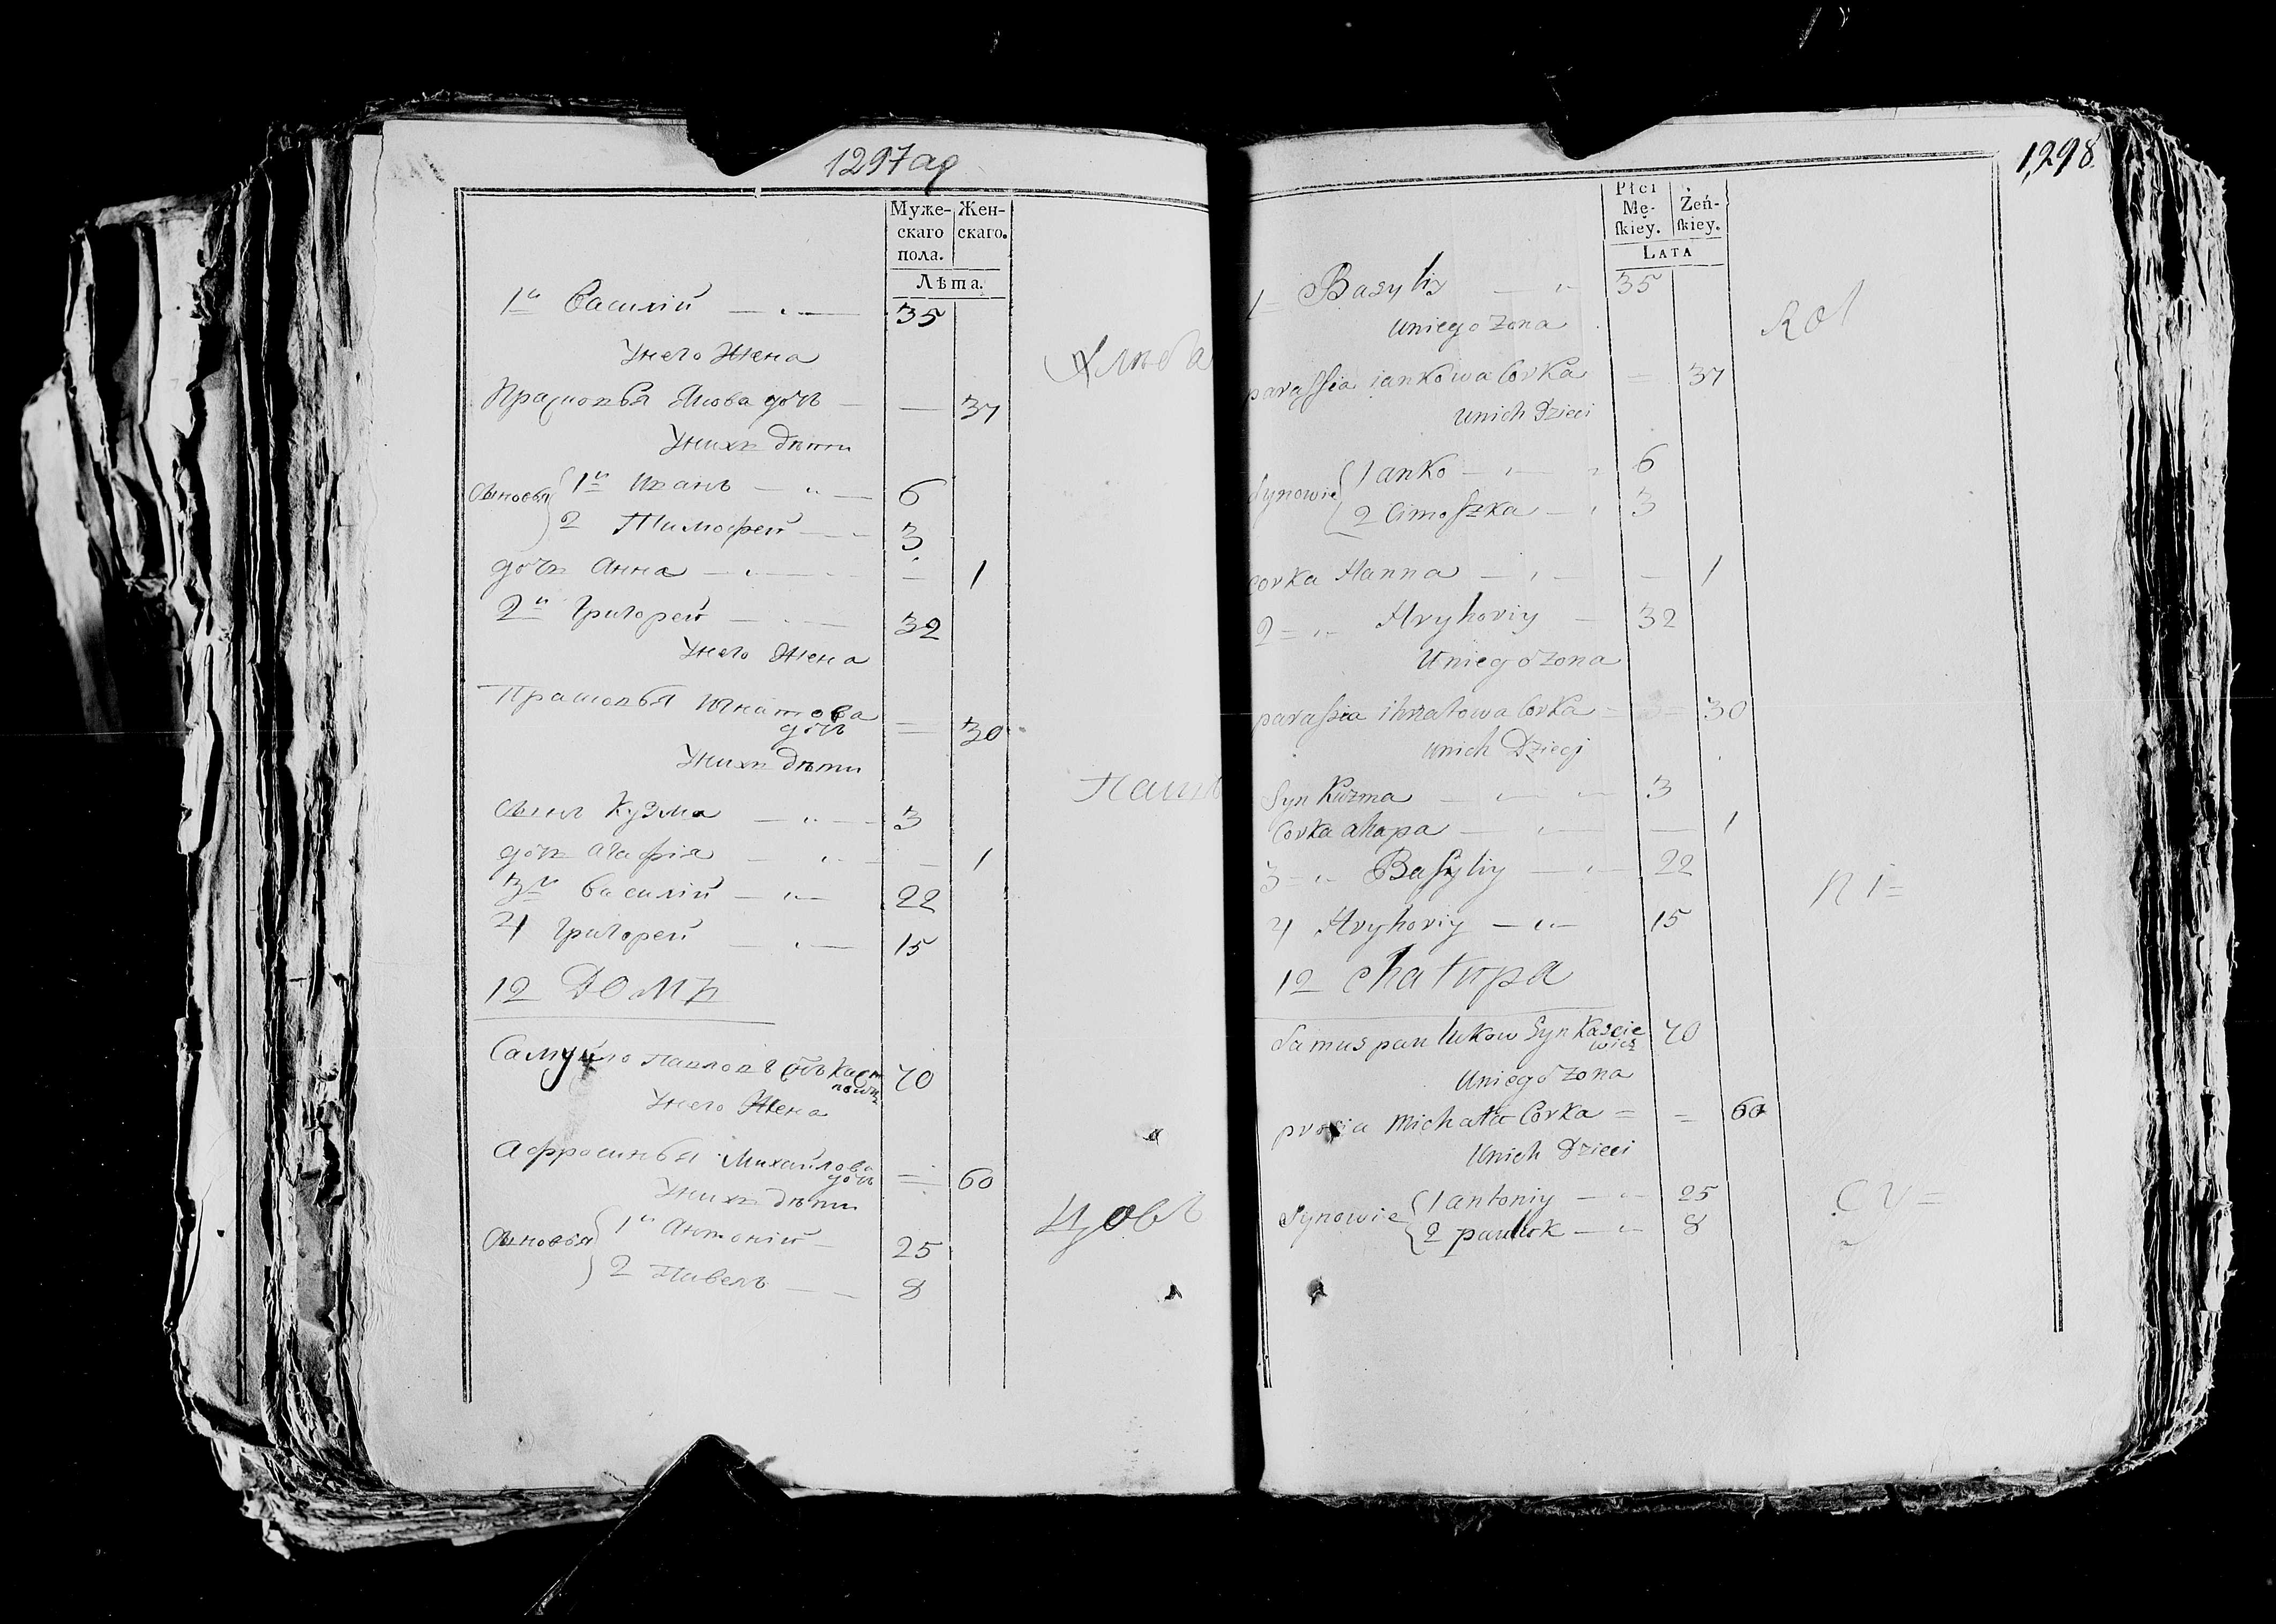 1297 ад
Муже-
скаго
пола.
Жен-
скаго.
Лѣта.
1й Василій 35
Унего Жена
Прасковья Якова дочь 37
Унихъ дѣти
Сыновья 1й Иванъ 6
2 Тимофей 3
дочь Анна 1
2й Григорей 32
Унего Жена
Прасковья Игнатова
дочь 30
Унихъ дѣти
Сынъ Кузма 3
дочь Агафія 1
3й Василій 22
4 Григорей 15
12 ДОМЪ
Самуйло Павловъ 70
Унего Жена
Афросинья Михайлова
дочь 60
Унихъ дѣти
Сыновья 1й Антоній 25
2 Павелъ 8
Хлѣба
Паш
цовъ
1298
Płci
Mę-
ſkiey.
Żeń-
ſkiey.
LATA
1 Basyliy 35
uniego zona
parassia iankowa Corka 37
unich Dzieci
Synowie 1 anko 6
2 Cimoszka 3
corka Hanna 1
2 Hryhoriy 32
Uniego zona
parassia ihnatowa Corka 30
unich Dzieci
Syn Kuzma 3
Corka ahapa 1
3 Basyliy 22
4 Hryhoriy 15
12 chałupa
Samus pawlukow Syn Kascie
wicz 70
Uniego zona
prosia Michała Corka 60
Unich Dzieci
Synowie 1 antoniy 25
2 pawluk 8
Rol
ni=
cy=